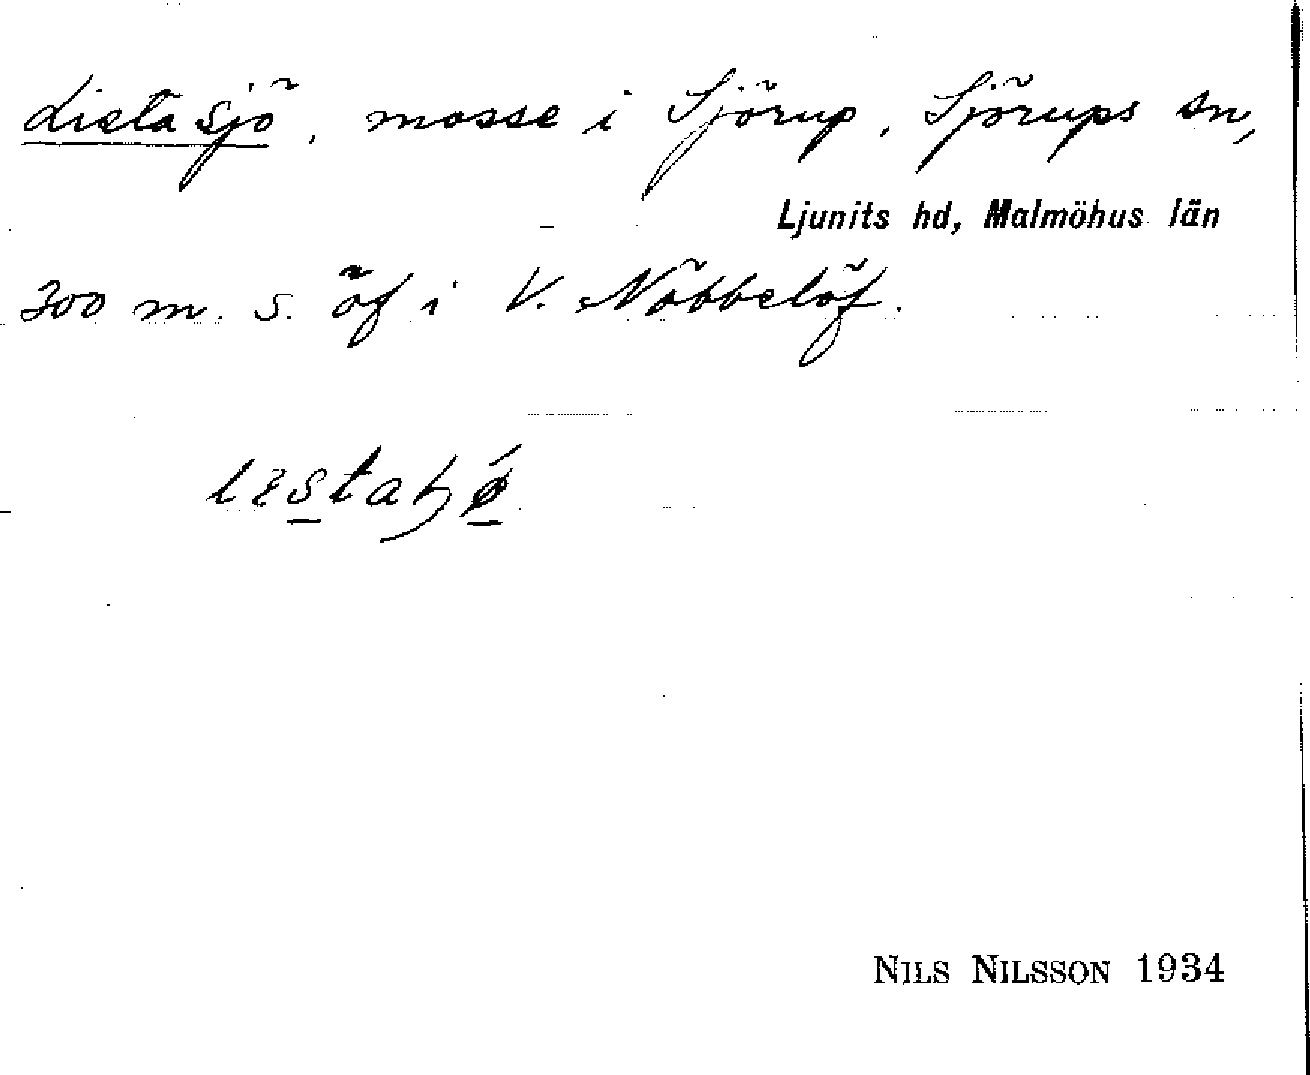 Listasjö, mosse i Sjörup, Sjörups sn,
Ljunits hd, Malmöhus län
300 m. s. öf i V. Nöbbelöf.
NILS NILSSON 1934